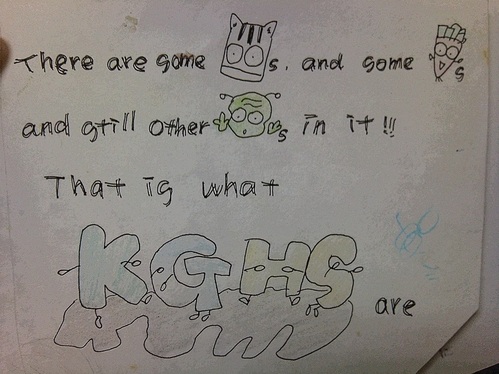 There are some s, and some s
and still other s in it!!!
That is what
KGHS are